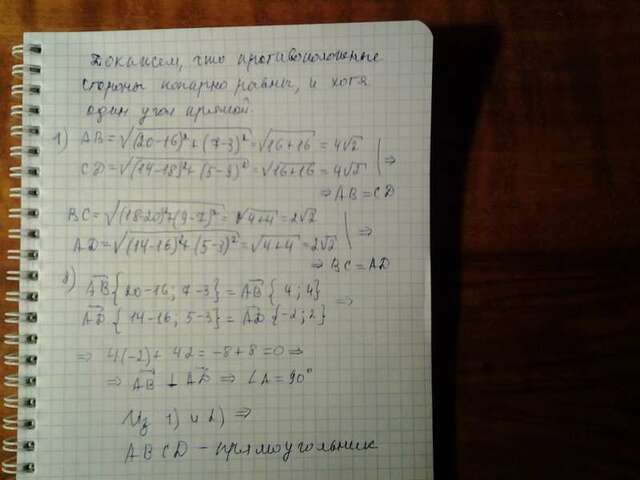 Докажем, что противоположные
стороны попарно равны, и хотя
один угол прямой.
1) AB=√(20-16)²+(7-3)²=√16+16 = 4√2
CD=√(14-18)²+(5-9)²=√16+16 = 4√2 ⇒
⇒ AB=CD
BC=√(18-20)²+(9-7)²= √4+4=2√2
AD=√(14-16)²+(5-3)²=√4+4=2√2 ⇒
⇒ BC=AD
2) AB{20-16; 7-3}=AB{4; 4} ⇒
AD{14-16; 5-3}=AD{-2; 2}
⇒ 4(-2)+ 4·2= -8+8=0 ⇒
⇒ AB ⊥ AD ⇒ ∠A=90°
Из 1) и 2) ⇒
ABCD - прямоугольник